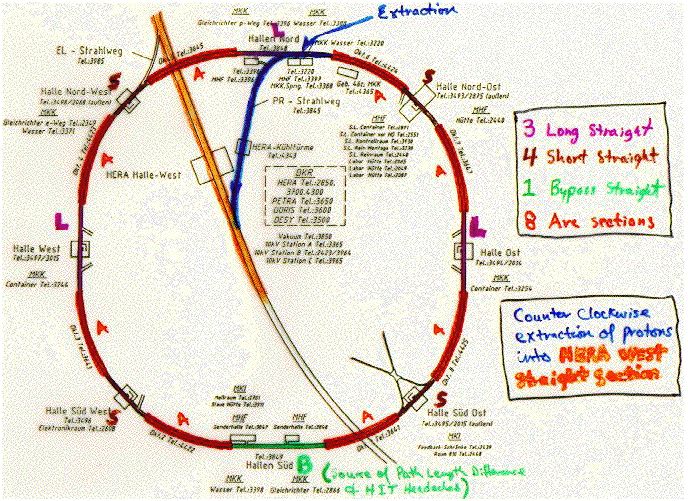 MKK
Gleichrichter p-Weg Tel.:3396
MKK
Wasser Tel.:3398
Extraction
L
Hallen Nord
Tel.:3848
MKK Wasser Tel.:3220
EL - Strahlweg
Tel.:3985
Okt.5 Tel.:3645
Okt.6 Tel.:4424
A
A
S
S
Tel.:3396
MHF Tel.:3396
Tel.:3220
MHF Tel.:3399
MKK,Spng. Tel.:3388
Geb. 48c, MKK
Tel.:4365
PR - Strahlweg
Tel.:3845
Halle Nord-West
Tel.:3498/2088 (außen)
MKK
Gleichrichter e-Weg Tel.:2349
Wasser Tel.:3371
Halle Nord-Ost
Tel.:3493/2875 (außen)
MHF
Hütte Tel.:2448
MHF
S.L. Container Tel.:2871
S.L. Container vor HO Tel.:2551
S.L. Kontrollraum Tel.:3930
S.L. Rein Montage Tel.:3230
S.L. Reinraum Tel.:2448
Labor Hütte
Labor Hütte
Labor Hütte
A
A
HERA-Kühltürme
Tel.:4343
HERA Halle-West
DKR
HERA Tel.:2850,
3700,4300
PETRA Tel.:3650
DORIS Tel.:3600
DESY Tel.:3500
Vakuum Tel.:3850
10kV Station A Tel.:3365
10kV Station B Tel.:2423/3964
10kV Station C Tel.:3965
3 Long Straight
4 Short Straight
1 Bypass Straight
8 Arc sections
L
L
Halle West
Tel.:3497/3015
MKK
Container Tel.:3244
Halle Ost
Tel.:3494/2014
MKK
Container Tel.:3254
Counter Clockwise
extraction of protons
into HERA West
Straight Section
A
A
S
S
Halle Süd West
Tel.:3496
Elektronikraum Tel.:2608
Halle Süd Ost
Tel.:3495/2015 (außen)
MKI
Feedback-Schränke Tel.:2439
A
A
MKI
MHF
Senderhalle Tel.:3847
MHF
Senderhalle Tel.:3848
Tel.:3849
Hallen Süd
B
(source of Path Length Difference
of HIT Headaches)
MKK
Wasser Tel.:3398
MKK
Gleichrichter Tel.:2866